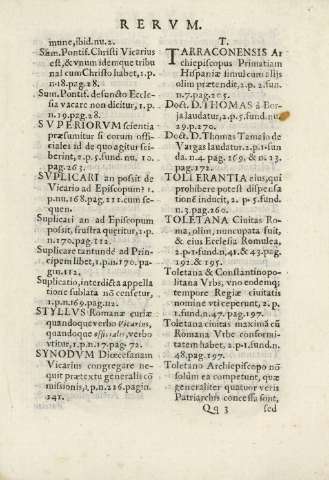 RERVM.
mune, ibid. nu. 2.
Sum. Pontif. Christi Vicarius
est, & vnum idemque tribu
nal cum Christo habet, 1. p.
n. 18. pag. 28.
Sum. Pontif. defuncto Eccle-
sia vacare non dicitur, 1. p.
n. 19. pag. 28.
SVPERIORVM scientia
præsumitur si eorum offi-
ciales id de quo agitur sci-
berint, 2. p. 5. fund. nu. 10.
pag. 263.
SVPLICARI an possit de
Vicario ad Episcopum? 1.
p. nu. 168. pag. 211. cum se-
quen.
Suplicari an ad Episcopum
possit, frustra queritur, 1. p.
n. 170. pag. 112.
Suplicare tantundē ad Prin-
cipem libet, 1. p. n. 170. pa-
gin. 112.
Suplicatio, interdicta appella
tione sublata nō censetur,
1. p. n. 169. pag. 112.
STYLLVS Romanæ curiæ
quandoque verbo Vicarius,
quandoque officialis, verbo
vtitur, 1. p. n. 17. pag. 72.
SYNODVM Diœcesanam
Vicarius congregare ne-
quit prætextu generalis cō
missionis, 1. p. n. 226. pagin.
241.
T.
TARRACONENSIS Ar
chiepiscopus Primatiam
Hispaniæ simul cum alijs
olim prætendit, 2. p. 2. fun.
n. 7. pag. 205.
Doct. D. THOMAS à Bor-
ja laudatur, 2. p. 5. fund. nu.
29. p. 270.
Doct. D. Thomas Tamaio de
Vargas laudatur. 2. p. 1. fun
da. n. 4. pag. 169. & n. 23.
pag. 172.
TOLERANTIA eius, qui
prohibere potest dispensa
tionē inducit, 2. p. 3. fund.
n. 3. pag. 260.
TOLETANA Ciuitas Ro-
ma, olim, nuncupata fuit,
& eius Ecclesia Romulea,
2. p. 1. fund. n. 41. & 43. pag.
192. & 195.
Toletana & Constantinopo-
litana Vrbs, vno eodemq;
tempore Regiæ ciuitatis
nomine vti ceperunt, 2. p.
1. fund. n. 47. pag. 197.
Toletana ciuitas maximā cū
Romana Vrbe conformi-
tatem habet, 2. p. 1. fund. n.
48. pag. 197.
Toletano Archiepiscopo nō
solùm ea competunt, quæ
generaliter quatuor veris
Patriarchis concessa sunt,
Qq 3
sed